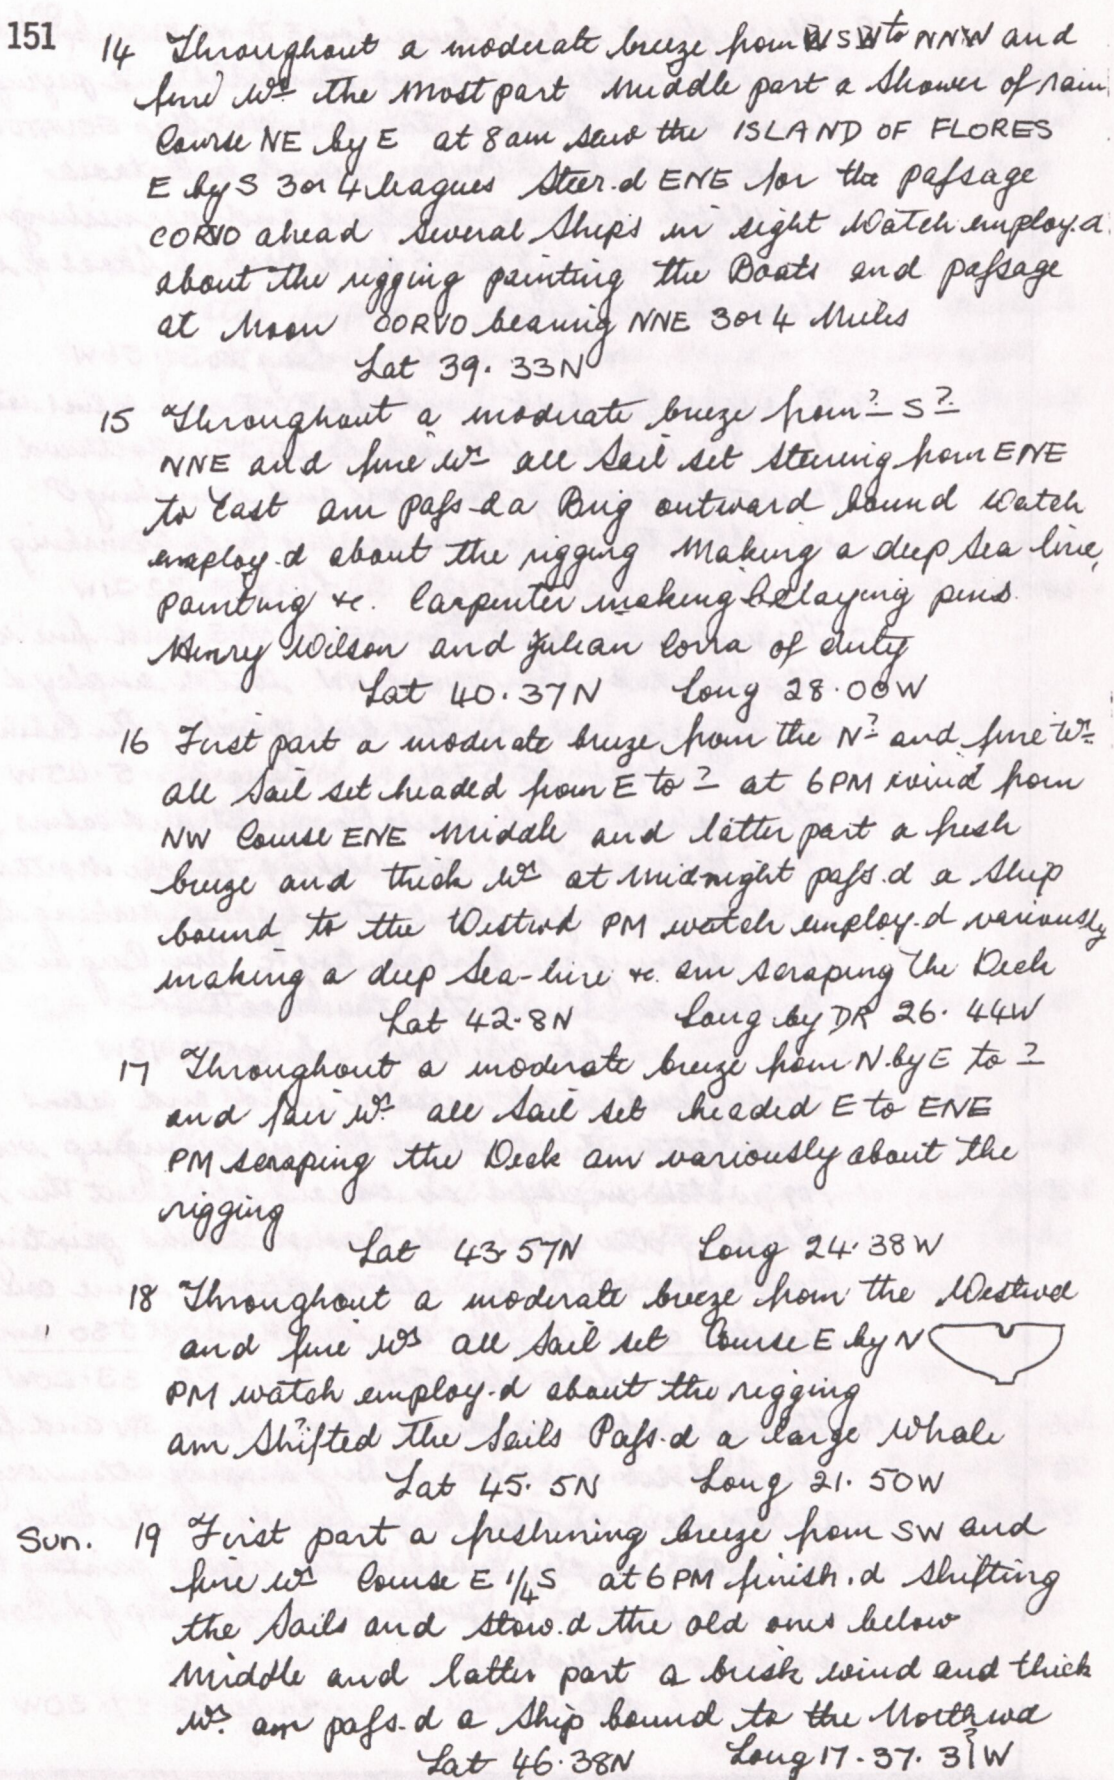 151
14 Throughout a moderate breeze from WSW to NNW and
fine Wr the most part Middle part a Shower of rain
Course NE by E at 8am saw the ISLAND OF FLORES
E by S 3 or 4 leagues Steer.d ENE for the pafsage
CORVO ahead Several Ships in sight Watch employ.d
about the rigging painting the Boats and pafsage
at Noon CORVO bearing NNE 3 or 4 Miles
Lat 39.33N
15 Throughout a moderate breeze from ? S ?
NNE and fine Wr all Sail set Steering from ENE
to East am pafs-d a Brig outward bound Watch
employ.d about the rigging Making a deep Sea line,
painting &c. Carpenter making belaying pins.
Henry Wilson and Julian Corra of duty
Lat 40.37N Long 28.00W
16 First part a moderate breeze from the N? and fine Wr
all Sail set headed from E to ? at 6PM wind from
NW Course ENE Middle and latter part a fresh
breeze and thick Wr at Midnight pafs.d a Ship
bound to the Westwd PM watch employ.d variously
making a deep Sea-line &c. am scraping the Deck
Lat 42.8N Long by DR 26.44W
17 Throughout a moderate breeze from N.by E to ?
and fair Wr all Sail set headed E to ENE
PM scraping the Deck am variously about the
rigging
Lat 43.57N Long 24.38W
18 Throughout a moderate breeze from the Westwd
and fine Wr all Sail set Course E by N
PM watch employ.d about the rigging
am Shifted the Sails Pafs.d a large Whale
Lat 45.5N Long 21.50W
Sun. 19 First part a freshening breeze from SW and
fine Wr Course E 1/4 S at 6PM finish.d Shifting
the Sails and Stow.d the old ones below
Middle and latter part a brisk wind and thick
Wr am pafs.d a Ship bound to the Northwd
Lat 46.38N Long 17.37.31W